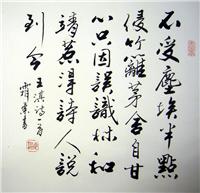 不受塵埃半點
侵竹籬茅舍自甘
心只因誤識林和
靖惹得詩人說
到今
王淇詩一首